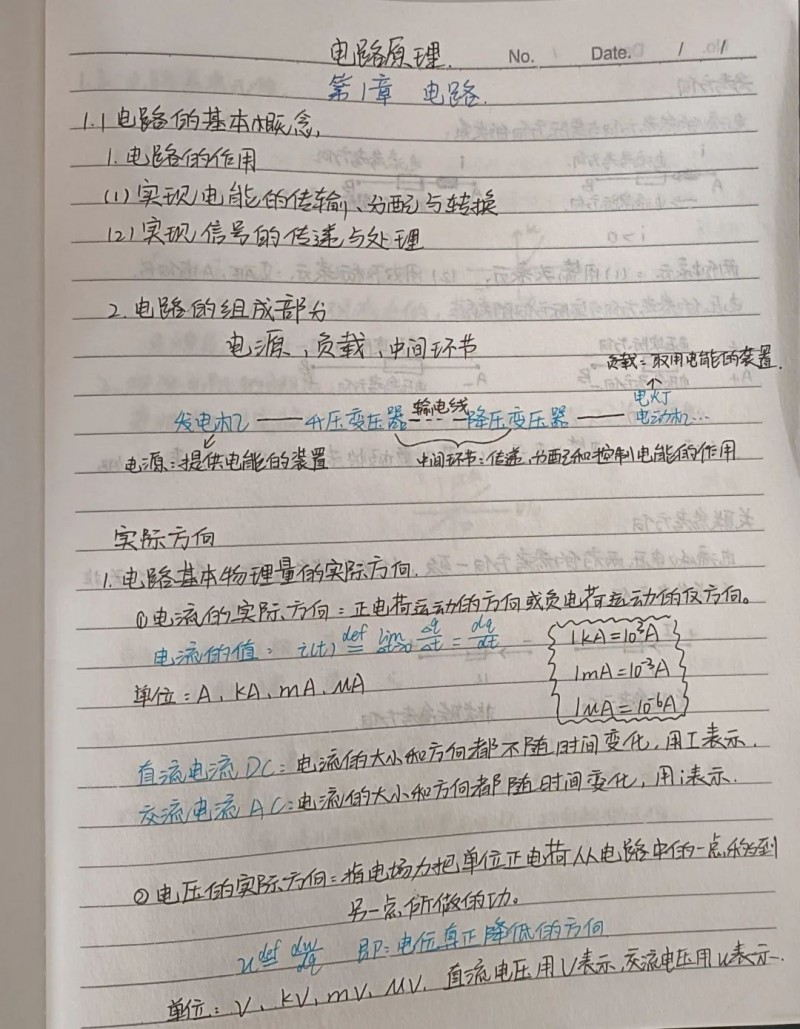 电路原理. No. Date. / /
第1章 电路.
1.1 电路的基本概念,
1. 电路的作用
(1) 实现电能的传输、分配与转换
(2) 实现信号的传递与处理
2. 电路的组成部分
电源,负载,中间环节
负载:取用电能的装置.
↑
发电机 —— 升压变压器 --- 输电线 --- 降压变压器 —— 电灯 电动机…
电源:提供电能的装置 中间环节:传递,分配和控制电能的作用
实际方向
1. 电路基本物理量的实际方向.
① 电流的实际方向:正电荷运动的方向或负电荷运动的反方向。
电流的值: i(t) def= lim Δt→0 Δq/Δt = dq/dt
1kA=10³A
1mA=10⁻³A
1μA=10⁻⁶A
单位:A、kA、mA、μA
直流电流 DC:电流的大小和方向都不随时间变化,用I表示.
交流电流 AC:电流的大小和方向都随时间变化,用i表示.
② 电压的实际方向:指电场力把单位正电荷从电路中的一点移到
另一点所做的功。
u def= dw/dq 即:电位真正降低的方向
单位:V、kV、mV、μV. 直流电压用U表示,交流电压用u表示.